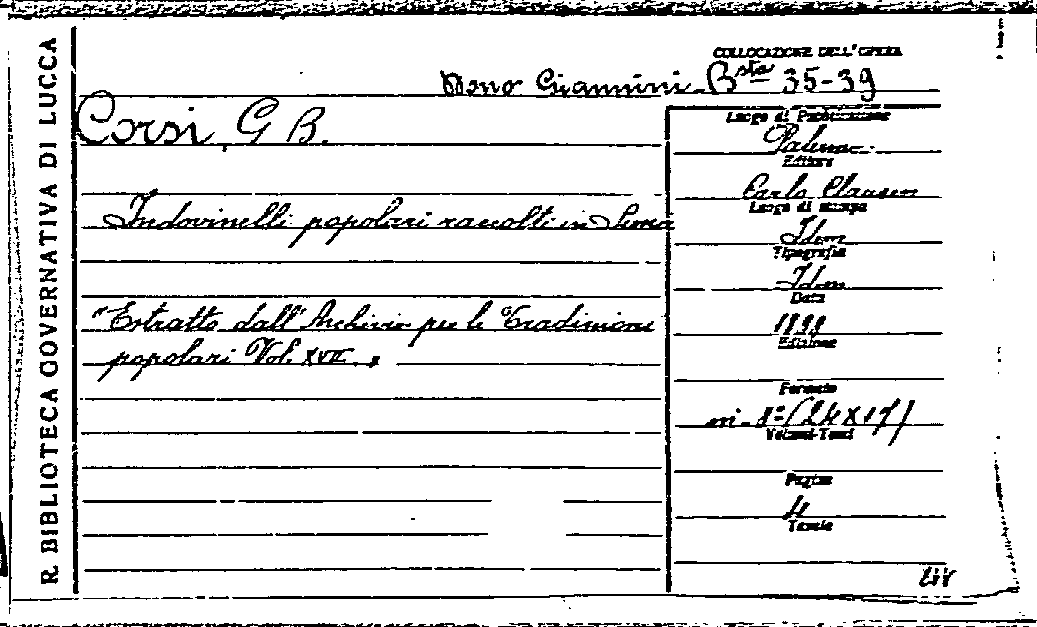 R. BIBLIOTECA GOVERNATIVA DI LUCCA
COLLOCAZIONE DELL'OPERA
Dono Giannini B.sta 35-39
Corsi, G B.
Luogo di Pubblicazione
Palermo
Editore
Carlo Clausen
Luogo di stampa
Idem
Tipografia
Idem
Data
Indovinelli popolari raccolti in Siena
"Estratto dall'Archivio per le Tradizioni
popolari Vol. XVII. "
Edizione
Formato
in-8º (24x17)
Volumi-Tomi
Pagine
4
Tavole